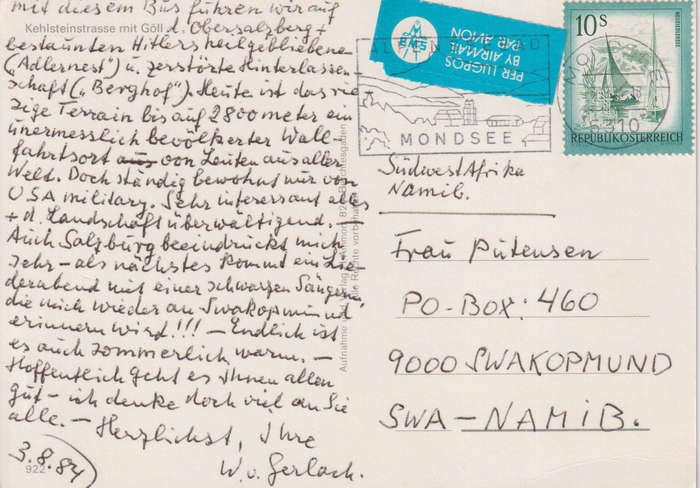 mit diesem Bus fuhren wir auf
Kehlsteinstrasse mit Göll
d. Obersalzberg +
bestaunten Hitlers heilgebliebene
("Adlernest") u. zerstörte Hinterlassen-
schaft ("Berghof"). Heute ist das rie-
zige Terrain bis auf 2800 meter ein
unermesslich bevölkerter Wall-
fahrtsort aus von Leuten aus aller
Welt. Doch ständig bewohnt nur von
USA military. Sehr interessant alles
+ d. Landschaft überwältigend. —
Auch Salzburg beeindruckt mich
sehr – als nächstes kommt ein Lie-
derabend mit einer schwarzen Sängerin,
die mich wieder an Swakopmund
erinnern wird!!! – Endlich ist
es auch sommerlich warm. –
Hoffentlich geht es Ihnen allen
gut – ich denke doch viel an Sie
alle. – Herzlichst, Ihre
W. v. Gerlach.
3.8.84
922
Aufnahme und Verlag
Alle Rechte vorbehalten
PER LUGPOS
BY AIRMAIL
PAR AVION
MONDSEE
10 S
REPUBLIK ÖSTERREICH
Südwest Afrika
Namib.
Frau Pütensen
PO-Box: 460
9000 SWAKOPMUND
SWA – NAMIB.